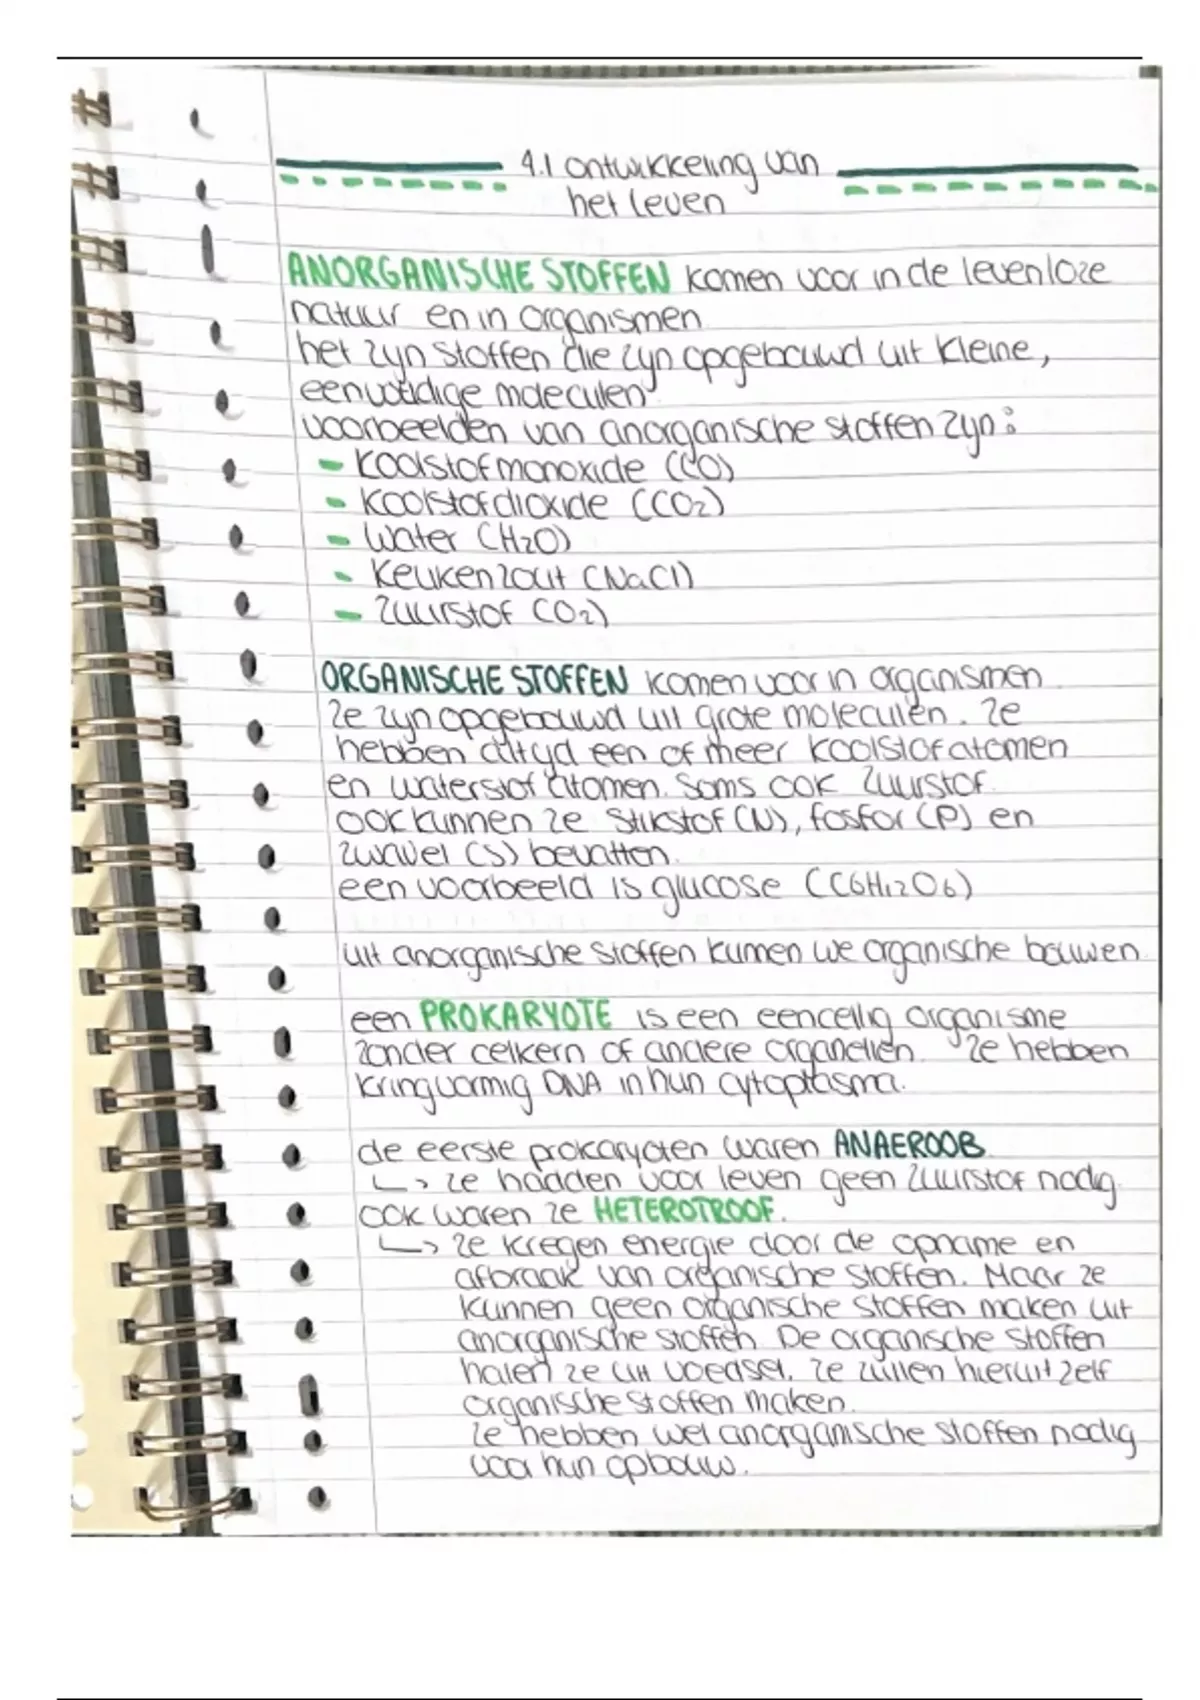 4.1 ontwikkeling van
het leven
ANORGANISCHE STOFFEN komen voor in de levenloze
natuur en in organismen
het zijn stoffen die zijn opgebouwd uit kleine,
eenvoudige moleculen
voorbeelden van anorganische stoffen zijn:
- Koolstofmonoxide (CO)
- Koolstofdioxide (CO2)
- Water (H2O)
- Keukenzout (NaCl)
- Zuurstof (O2)
ORGANISCHE STOFFEN komen voor in organismen.
Ze zijn opgebouwd uit grote moleculen. Ze
hebben altijd een of meer koolstofatomen
en waterstof atomen. Soms ook zuurstof.
ook kunnen ze stikstof (N), fosfor (P) en
zwavel (S) bevatten.
een voorbeeld is glucose (C6H12O6)
uit anorganische stoffen kunnen we organische bouwen.
een PROKARYOTE is een eencellig organisme
zonder celkern of andere organellen. Ze hebben
kringvormig DNA in hun cytoplasma.
de eerste prokaryoten waren ANAEROOB.
↳ ze hadden voor leven geen zuurstof nodig.
ook waren ze HETEROTROOF.
↳ ze kregen energie door de opname en
afbraak van organische stoffen. Maar ze
kunnen geen organische stoffen maken uit
anorganische stoffen. De organische stoffen
halen ze uit voedsel. Ze zullen hieruit zelf
organische stoffen maken.
Ze hebben wel anorganische stoffen nodig
voor hun opbouw.